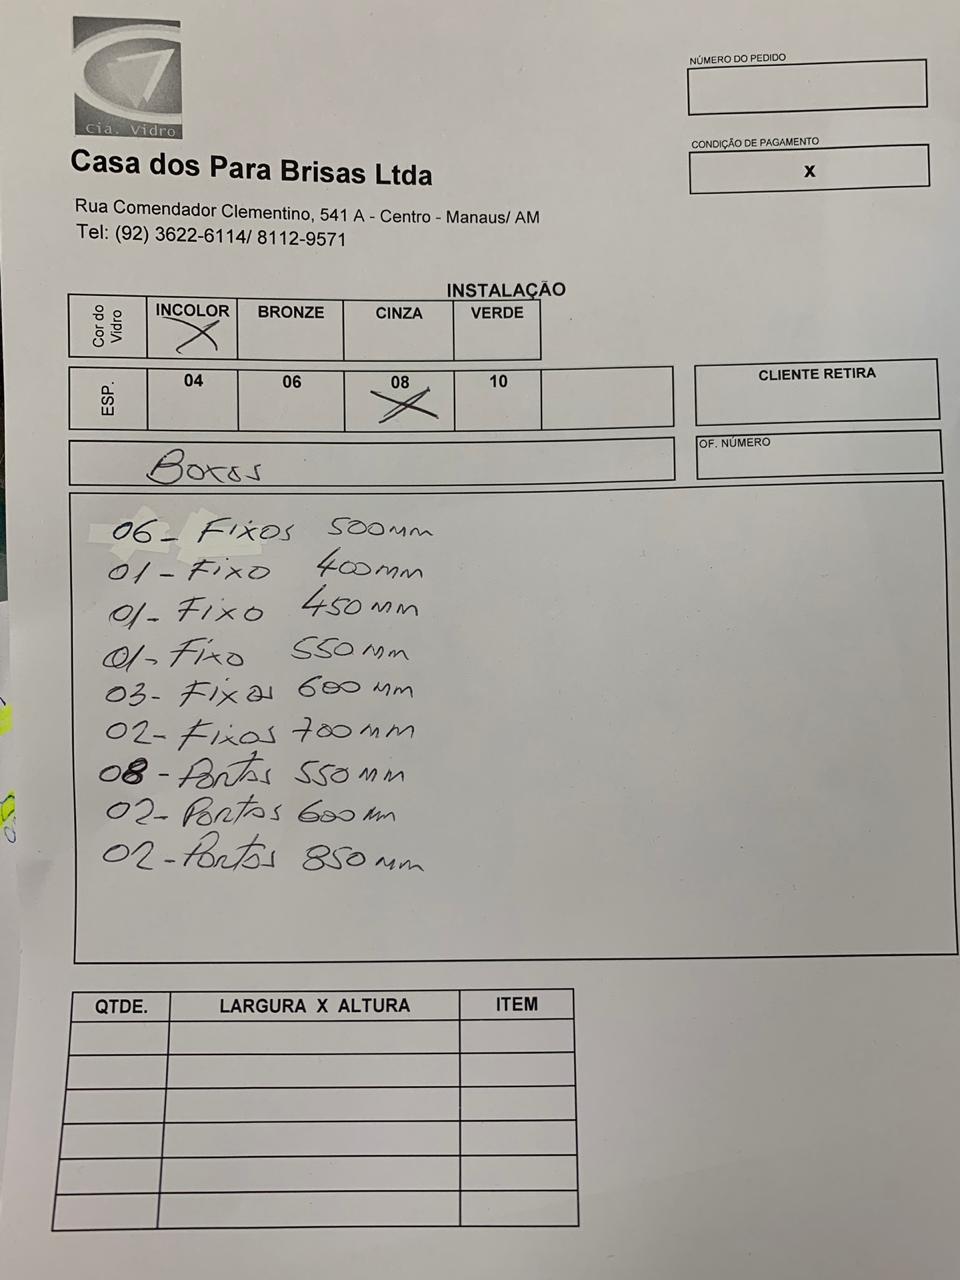 Cia. Vidro
NÚMERO DO PEDIDO
CONDIÇÃO DE PAGAMENTO
X
Casa dos Para Brisas Ltda
Rua Comendador Clementino, 541 A - Centro - Manaus/ AM
Tel: (92) 3622-6114/ 8112-9571
INSTALAÇÃO
Cor do Vidro INCOLOR BRONZE CINZA VERDE
X
ESP. 04 06 08 10
X
CLIENTE RETIRA
OF. NÚMERO
Boxes
06- Fixos 500mm
01- Fixo 400mm
01- Fixo 450mm
01- Fixo 550mm
03- Fixos 600mm
02- Fixos 700mm
08- Portas 550mm
02- Portas 600mm
02- Portas 850mm
QTDE. LARGURA X ALTURA ITEM